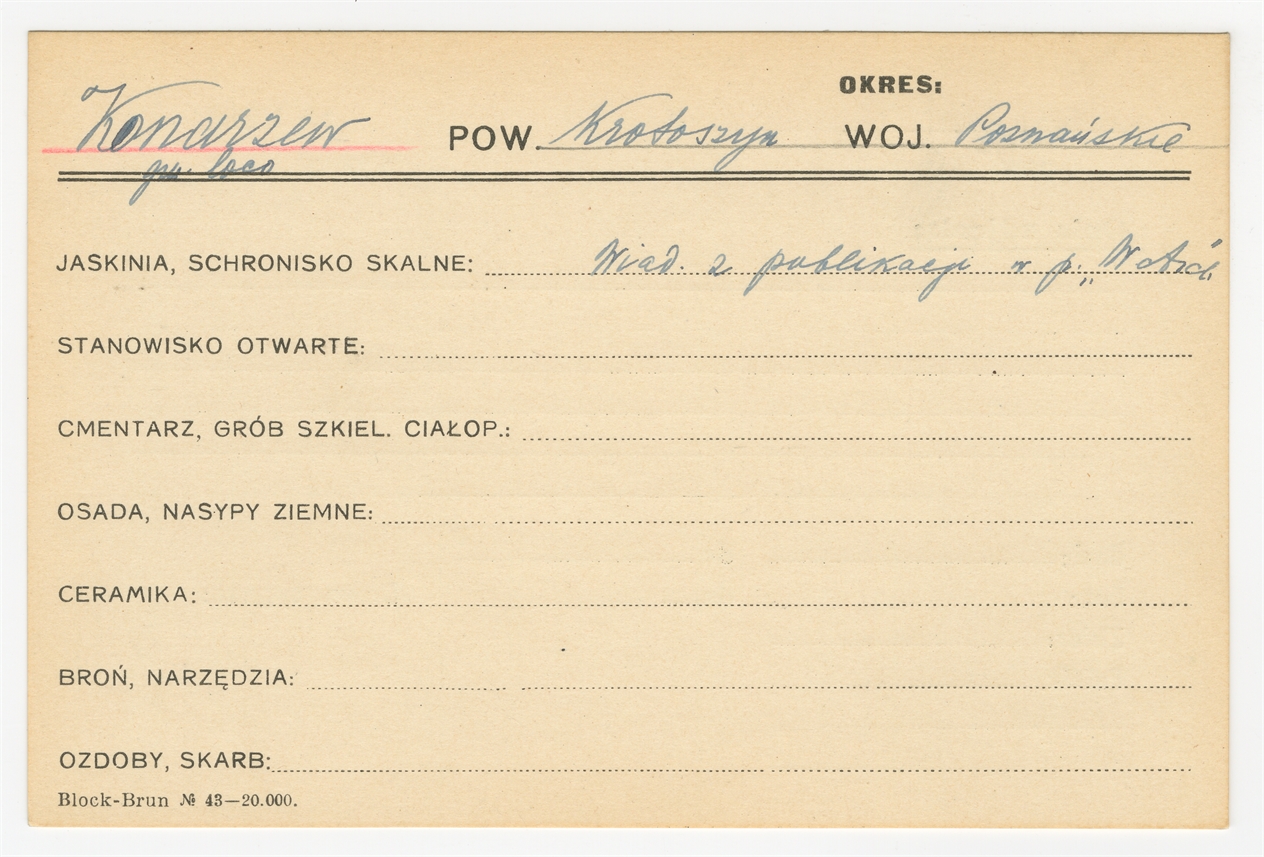 OKRES:
Konarzew POW. Krotoszyn WOJ. Poznańskie
gm. loco
JASKINIA, SCHRONISKO SKALNE: Wiad. z publikacji w p. „
STANOWISKO OTWARTE:
CMENTARZ, GRÓB SZKIEL. CIAŁOP.:
OSADA, NASYPY ZIEMNE:
CERAMIKA:
BROŃ, NARZĘDZIA:
OZDOBY, SKARB:
Block-Brun № 43—20.000.